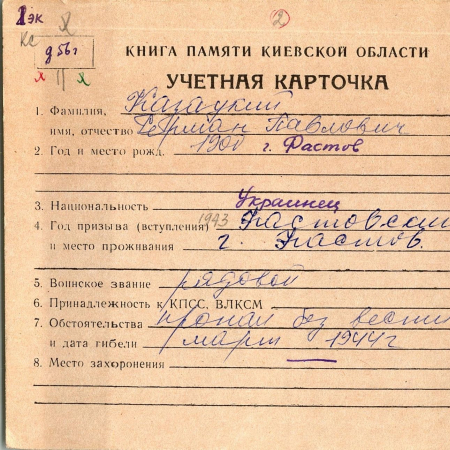 1 эк
2
кс
д 56г
я П я
КНИГА ПАМЯТИ КИЕВСКОЙ ОБЛАСТИ
УЧЕТНАЯ КАРТОЧКА
1. Фамилия, Казацкий
имя, отчество Герман Павлович
2. Год и место рожд. 1900 г. Фастов
3. Национальность Украинец
4. Год призыва (вступления) 1943 Фастовский
и место проживания г. Фастов.
5. Воинское звание рядовой
6. Принадлежность к КПСС, ВЛКСМ
7. Обстоятельства пропал без вести
и дата гибели март 1944г
8. Место захоронения